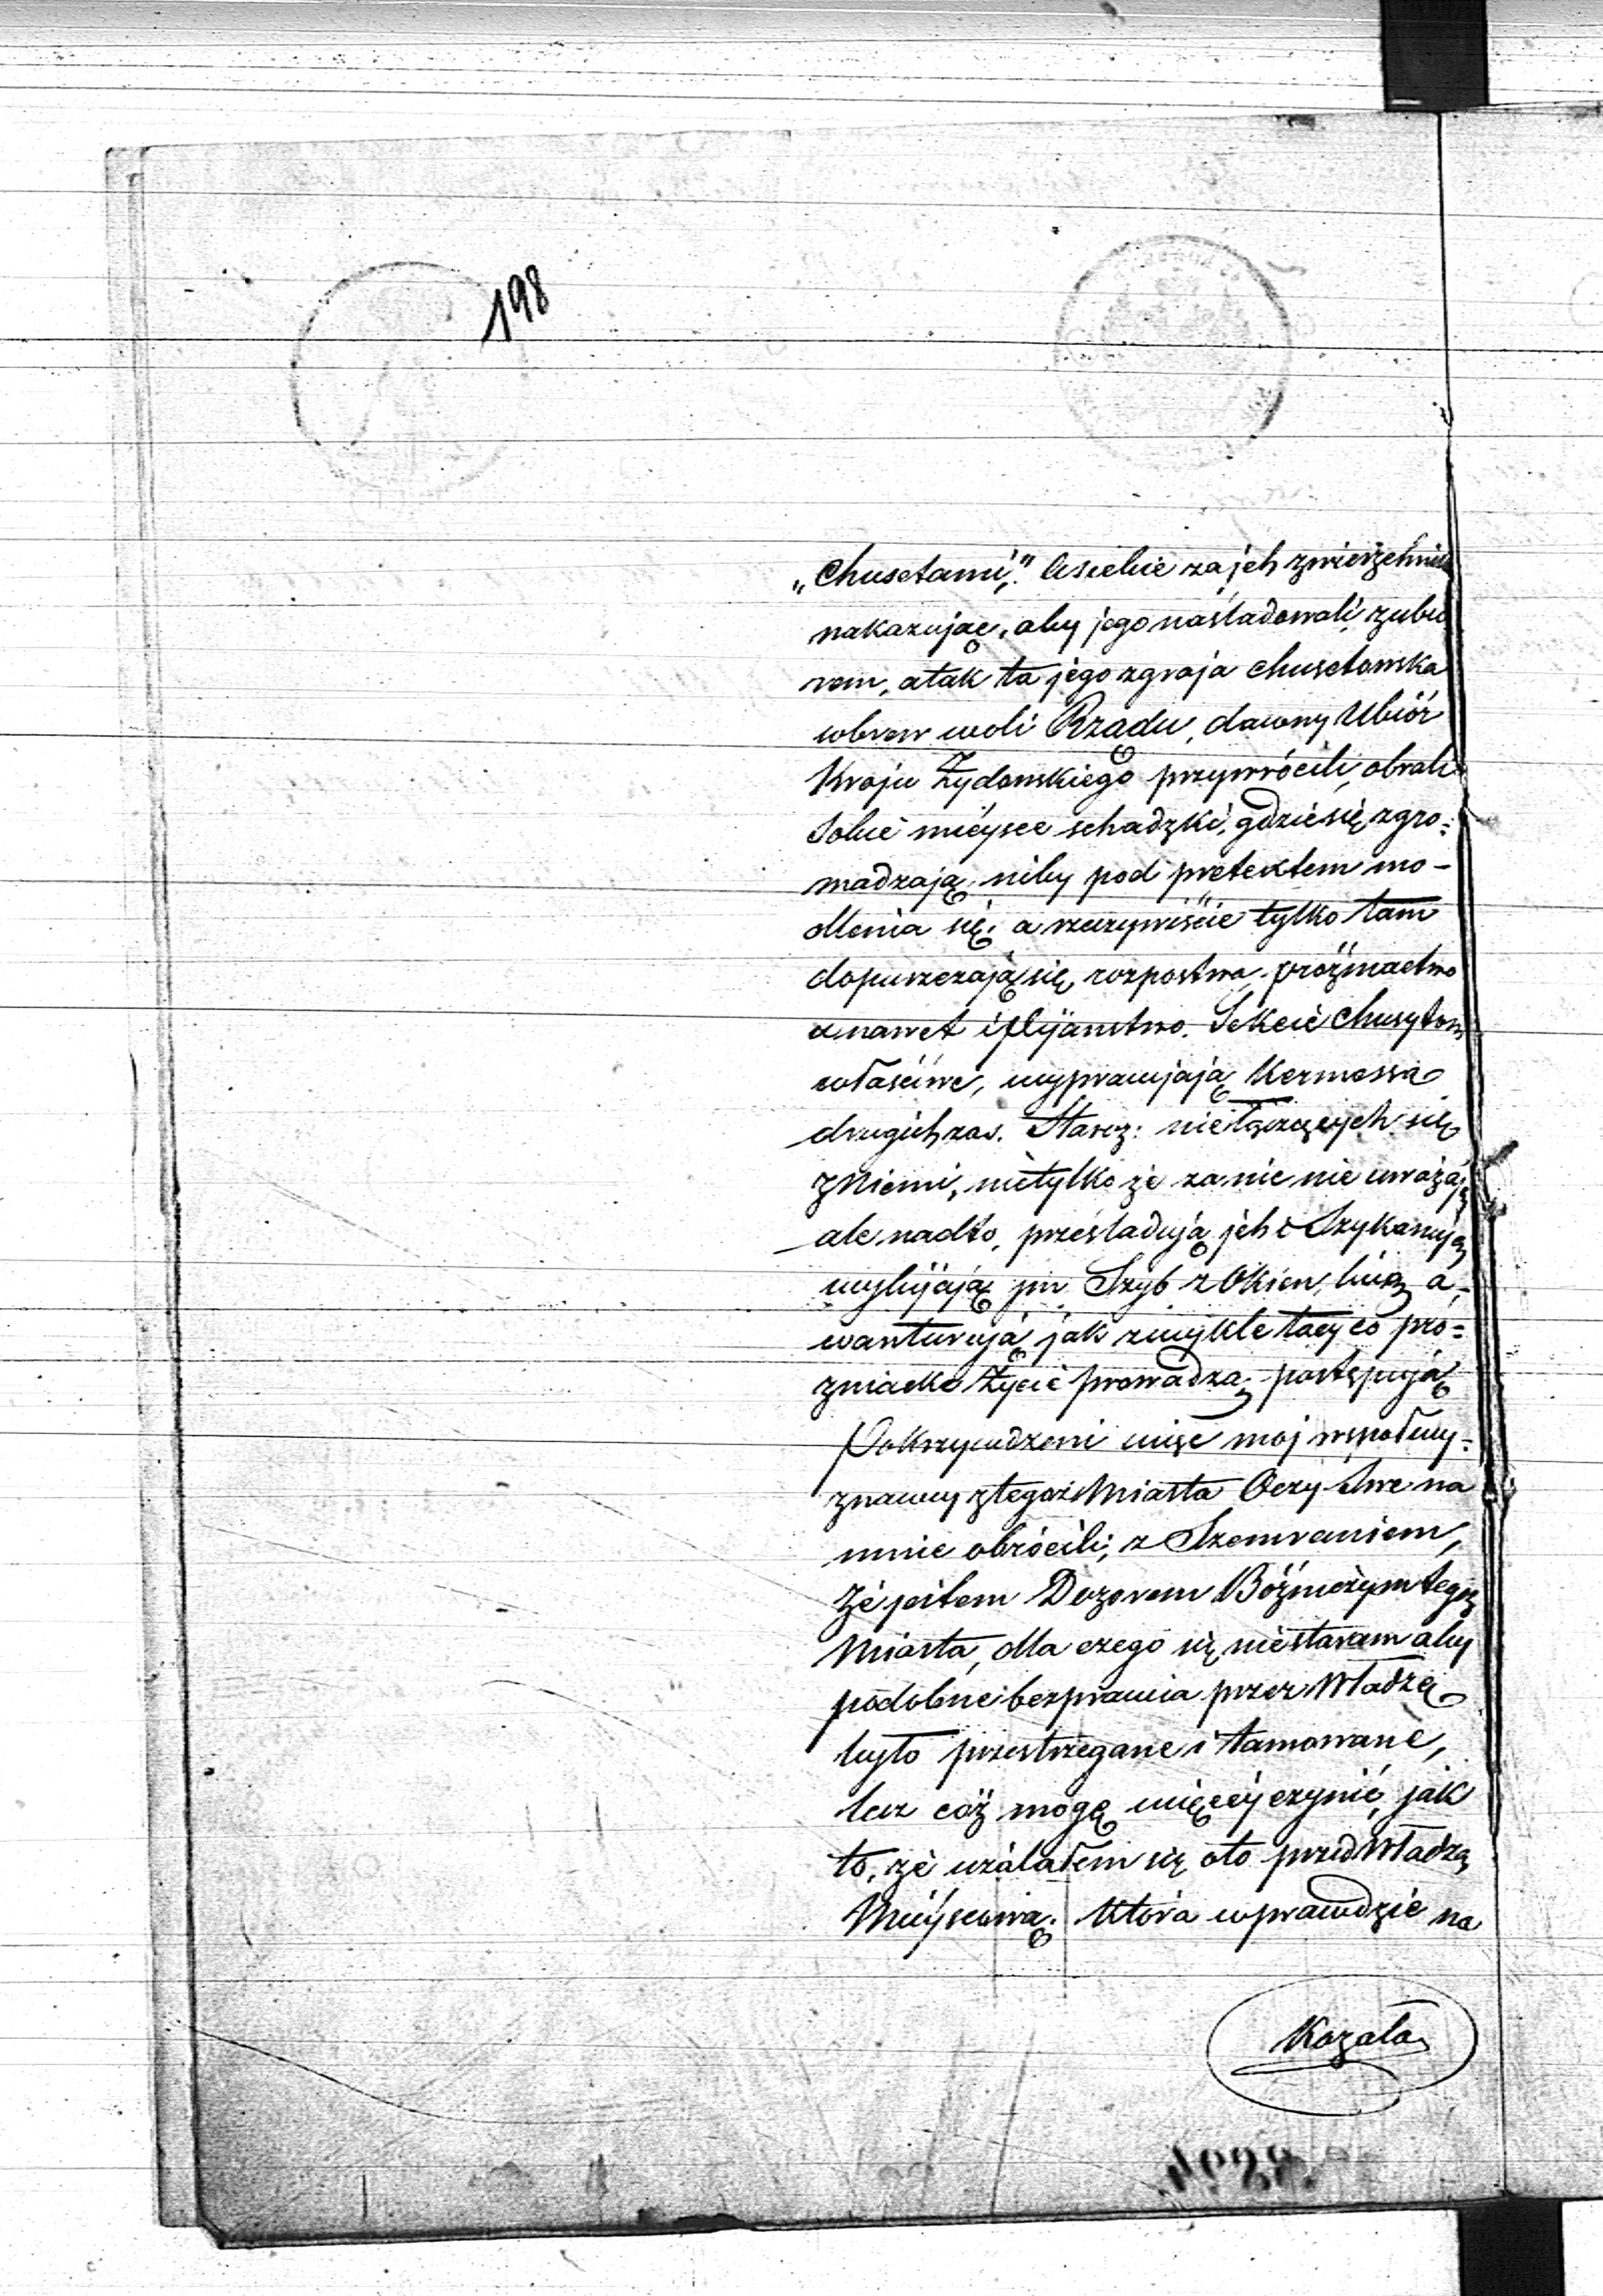 198
„Chusetami,” Asiebie za jch zwierzchnika
nakazując, aby jego naśladowali, zubio
rem, atak ta jego zgraja chusetowska
wbrew woli Rządu, dawny Ubiór
Kroju Żydowskiego przywrócili, obrali
Sobie miéysce schadzki, gdzie się zgro=
madzają, niby pod pretextem mo-
dlenia się, a rzeczywiście tylko tam
dopuszczają się rozpostwa, próżniactwo
a nawet i pijanstwo. Sekcie Chusytom
właściwe, wyprawjają
drugich zas. Staroz: niełączących się
z Niemi, nietylko że za nic nie uważają
ale nadto, prześladują jch i Szykanują
wybijają jm Szyb z Okien, biią a-
wanturują jak zwykle tacy co pró=
zniacke Życie prowadzą, postępują
Pokrzywdzeni więc moj wspołwy=
znawcy ztegoż Miasta Oczy Swe na
mnie obrócili, z Szemraniem,
Że jestem Dozorem Bóżniczym tegoż
Miasta, dla czego się niestaram aby
podobne bezprawia przez Władzę
było przestrzegane i tamowane,
lecz cóż mogę więcéy czynić, jak
to, że użalałem się oto przed Władzą
Miéyscową, Która wprawdzie na
Kozała